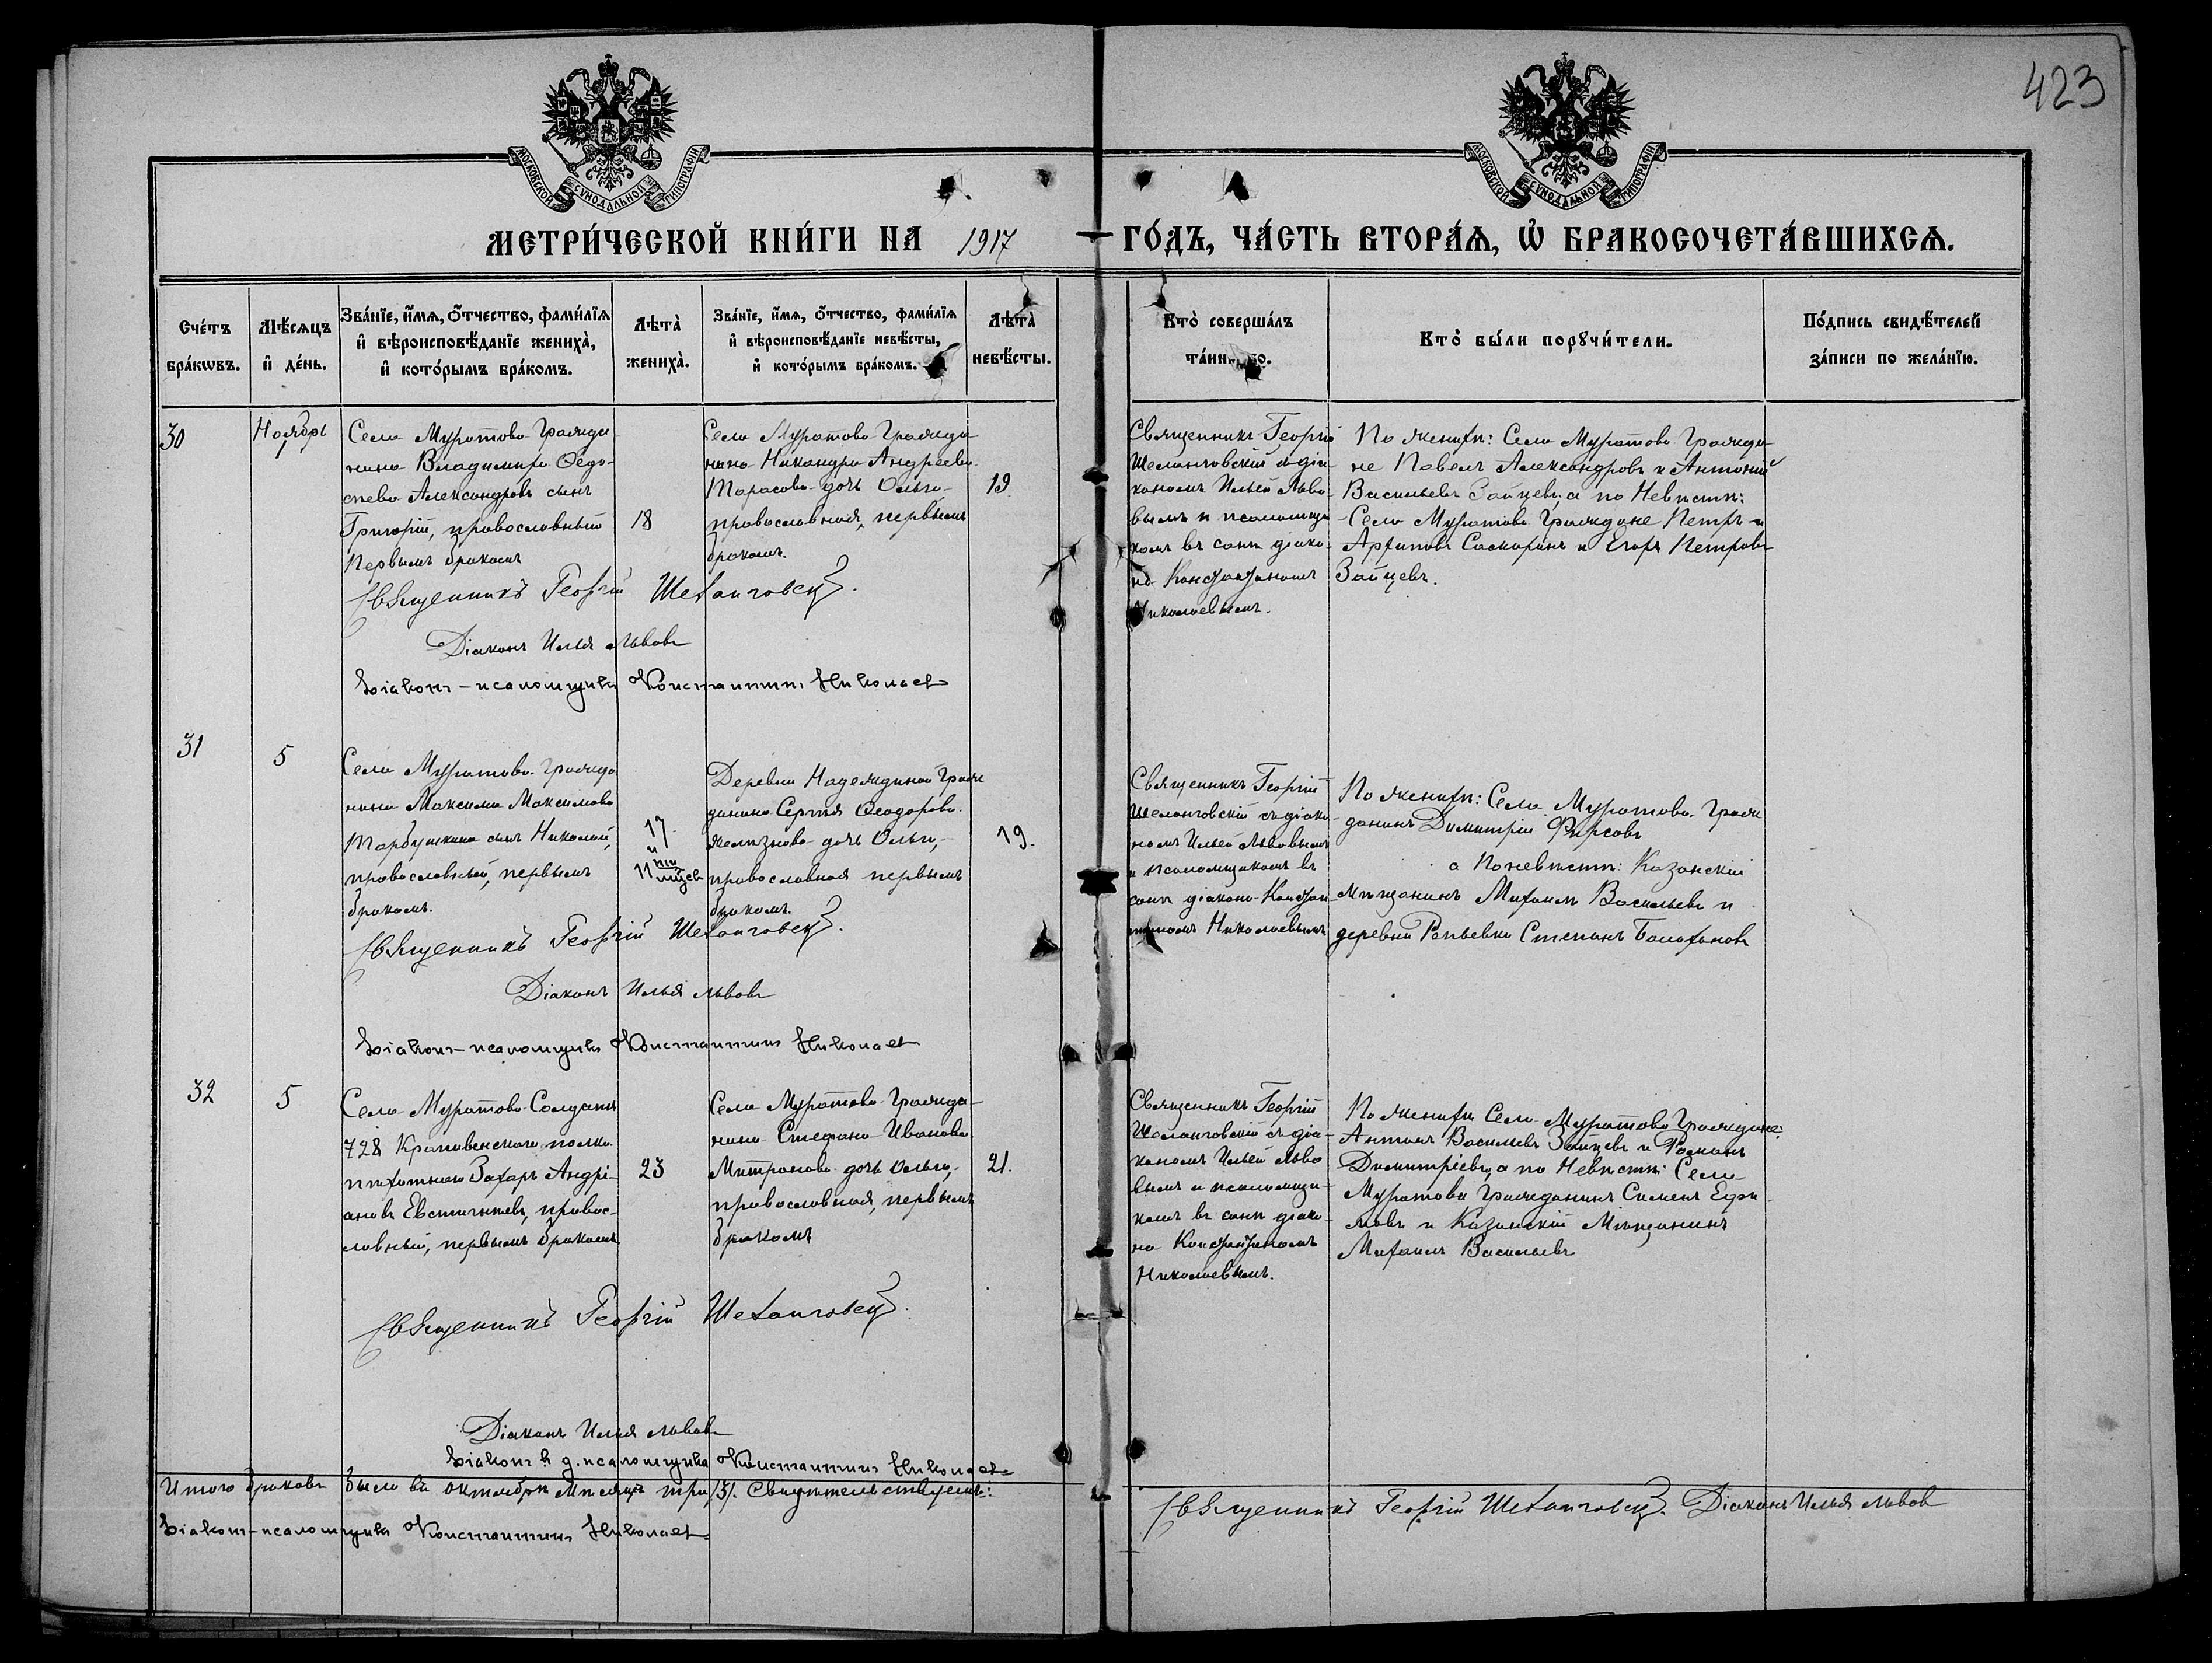 423
МОСКОВСКОЙ СУНОДАЛЬНОЙ ТИПОГРАФІИ
МОСКОВСКОЙ СУНОДАЛЬНОЙ ТИПОГРАФІИ
МЕТРИ́ЧЕСКОЙ КНИ́ГИ НА 1917 ГО́ДЪ, ЧА́СТЬ ВТОРА́Я, Ѡ҆ БРАКОСОЧЕТА́ВШИХСЯ.
Сче́тъ
бра́кѡвъ.
Мѣ́сяцъ
и҆ де́нь.
Зва́нїе, и҆́мя, о҆́тчество, фами́лїя
и҆ вѣроисповѣ́данїе жениха̀,
и҆ кото́рымъ бра́комъ.
Лѣта̀
жениха̀.
Зва́нїе, и҆́мя, о҆́тчество, фами́лїя
и҆ вѣроисповѣ́данїе невѣ́сты,
и҆ кото́рымъ бра́комъ.
Лѣта̀
невѣ́сты.
Кто̀ соверша́лъ
Кто̀ бы́ли порꙋчи́тели.
По́дпись свидѣ́телей
за́писи по жела́нїю.
30
Ноябрь
1
Села Муратова гражда
нина Владимира Ѳедо-
сѣева Александровъ сынъ
Григорій, православный
первымъ бракомъ
18
Села Муратова гражда
нина Никандра Андреева
Тарасова дочь Ольга,
православная, первымъ
бракомъ.
19
Священникъ Георгій
Шеланговскій съ діа
кономъ Ильей Льво-
вымъ и псаломщи
комъ въ санѣ діако-
на Константиномъ
Николаевымъ.
По женихѣ: Села Муратова Гражда-
не Павелъ Александровъ и Антоній
Васильевъ Зайцевъ; а по Невѣстѣ:
Села Муратова Граждане Петръ
Архиповъ Самаринъ и Егоръ Петровъ
Зайцевъ.
Священникъ Георгій Шеланговскій.
Діаконъ Илья Львовъ
Діаконъ-псаломщикъ Константинъ Николаевъ
31
5
Села Муратова гражда
нина Максима Максимова
Тарбушкина сынъ Николай,
православный, первымъ
бракомъ.
17
и
11 мѣсц
Деревни Надеждиной Граж
данина Сергѣя Ѳеодорова
Желѣзнова дочь Ольга,
православная первымъ
бракомъ.
19.
Священникъ Георгій
Шеланговскій съ діако
номъ Ильей Львовымъ
и псаломщикомъ въ
санѣ діакона Констан
тиномъ Николаевымъ
По женихѣ: Села Муратова Граж
данинъ Димитрій Фирсовъ
а по невѣстѣ: Казанскій
Мѣщанинъ Михаилъ Васильевъ и
деревни Репьевки Степанъ Балахановъ
Священникъ Георгій Шеланговскій.
Діаконъ Илья Львовъ
Діаконъ-псаломщикъ Константинъ Николаевъ
32
5
Села Муратова Солдатъ
728 Крапивенскаго полка
пѣхотнаго Захаръ Андрі-
ановъ Евстигнѣевъ, правос-
лавный, первымъ бракомъ
23
Села Муратова Гражда-
нина Стефана Иванова
Митронова дочь Ольга,
православная, первымъ
бракомъ
21.
Священникъ Георгій
Шеланговскій съ діа-
кономъ Ильей Льво
вымъ и псаломщи-
комъ въ санѣ діако-
на Константиномъ
Николаевымъ.
По женихѣ Села Муратова Граждане:
Антонъ Васильевъ Зайцевъ и Романъ
Димитріевъ, а по Невѣстѣ: Села
Муратова Гражданинъ Сименъ Ефи
мовъ и Казанскій Мѣщанинъ
Михаилъ Васильевъ
Священникъ Георгій Шеланговскій.
Діаконъ Илья Львовъ
Діаконъ в д. псаломщика Константинъ Николаевъ
Итого браковъ было въ октябрѣ мѣсяцѣ три /3/. Свидѣтельствуемъ:
Священникъ Георгій Шеланговскій. Діаконъ Илья Львов
Діаконъ-псаломщикъ Константинъ Николаевъ